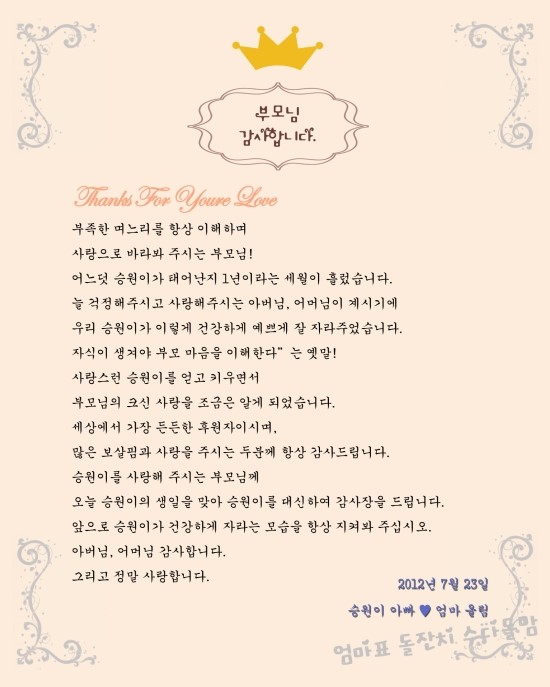 부모님
감사합니다.
Thanks For Youre Love
부족한 며느리를 항상 이해하며
사랑으로 바라봐 주시는 부모님!
어느덧 승원이가 태어난지 1년이라는 세월이 흘렀습니다.
늘 걱정해주시고 사랑해주시는 아버님, 어머님이 계시기에
우리 승원이가 이렇게 건강하게 예쁘게 잘 자라주었습니다.
자식이 생겨야 부모 마음을 이해한다" 는 옛말!
사랑스런 승원이를 얻고 키우면서
부모님의 크신 사랑을 조금은 알게 되었습니다.
세상에서 가장 든든한 후원자이시며,
많은 보살핌과 사랑을 주시는 두분께 항상 감사드립니다.
승원이를 사랑해 주시는 부모님께
오늘 승원이의 생일을 맞아 승원이를 대신하여 감사장을 드립니다.
앞으로 승원이가 건강하게 자라는 모습을 항상 지켜봐 주십시오.
아버님, 어머님 감사합니다.
그리고 정말 사랑합니다.
2012년 7월 23일
승원이 아빠 ♥ 엄마 올림
엄마표 돌잔치 수다들맘